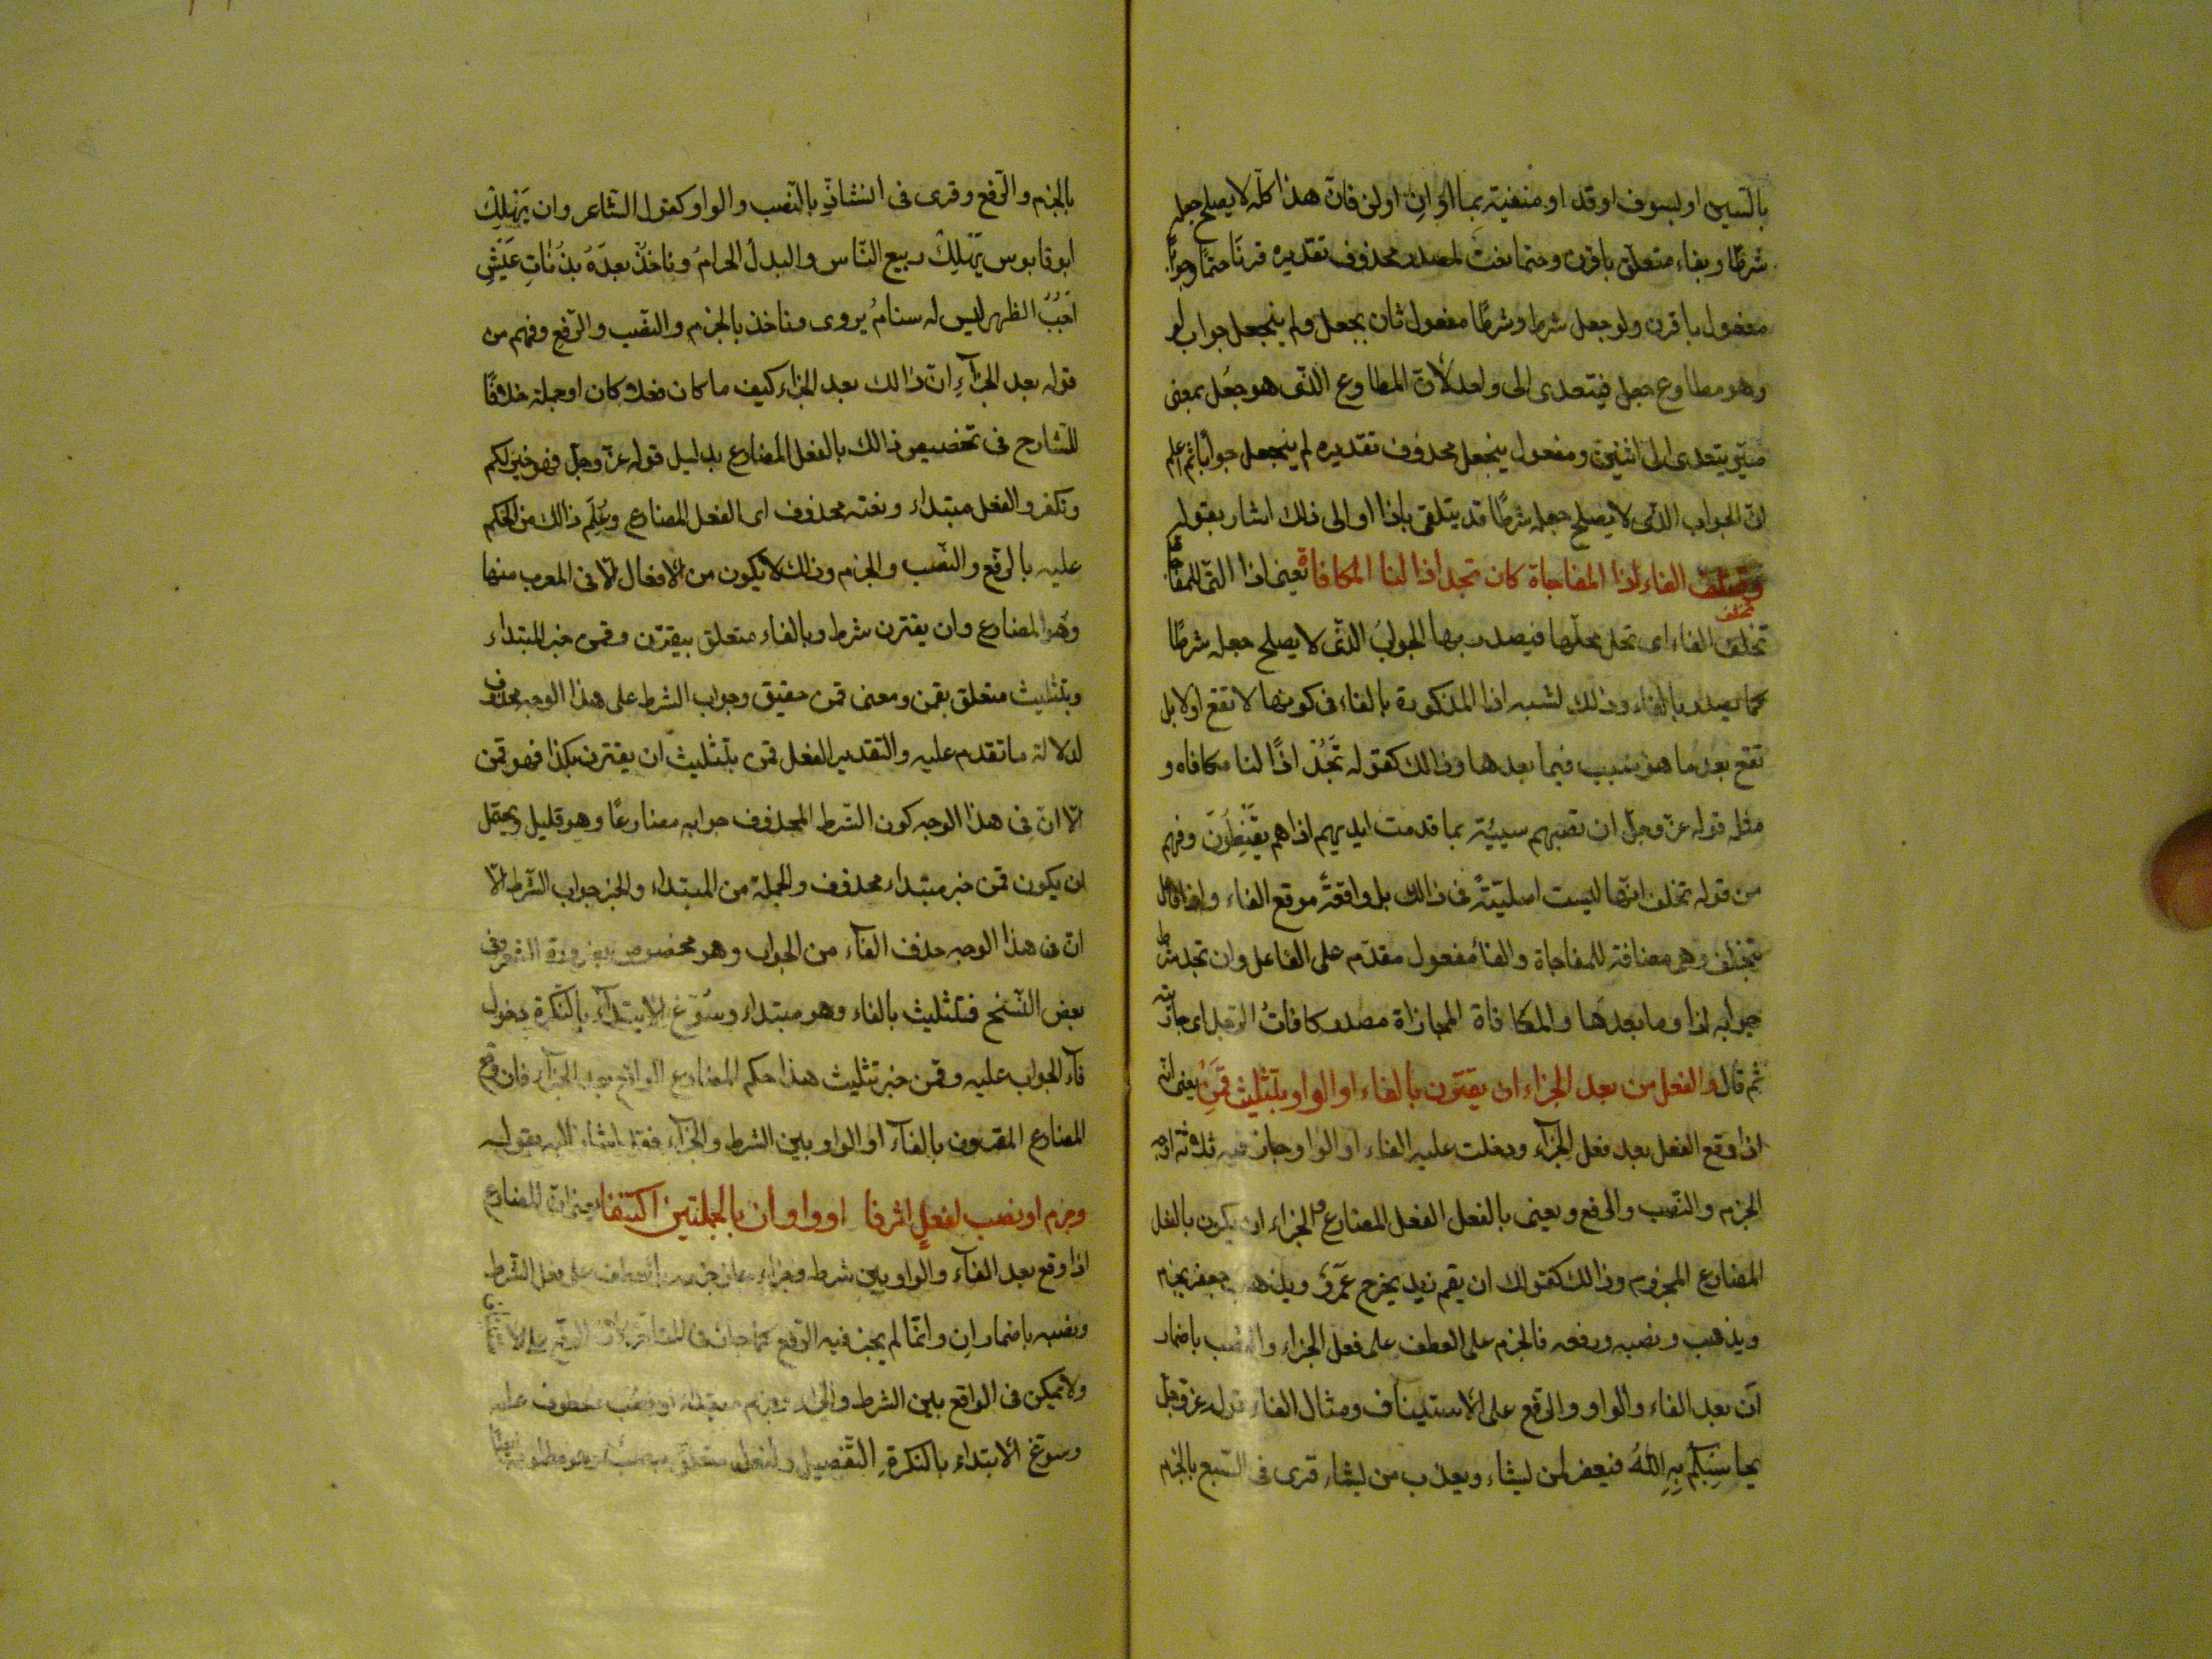 بالسين او بسوف او قد او منفية بما او ان او لن فان هذا كله لا يصلح جعله
شرطا وبفاء متعلق باقرن وحتما نعت لمصدر محذوف تقديره قرنا حتما وجوابا
مفعول باقرن ولو جعل شرط وشرطا مفعول ثان بجعل ولم ينجعل جواب لو
وهو مطاوع جعل فيتعدى الى واحد لان المطاوع الذى هو جعل بمعنى
صير يتعدى الى اثنين ومفعول ينجعل محذوف تقديره لم ينجعل جوابا ثم اعلم
ان الجواب الذى لا يصلح جعله شرطا قد يتلقى باذا او الى ذلك اشار بقوله
وتخلف الفاء اذا المفاجاة كان تجد اذا لنا المكافاة يعنى اذا التى للمفاجاة
تخلف الفاء اى تحل محلها فيصدر بها الجواب الذى لا يصلح جعله شرطا
كما يصدر بالفاء وذلك لشبه اذا المذكورة بالفاء فى كونها لا تقع اولا بل
تقع بعد ما هو سبب فيما بعدها وذالك كقوله تجد اذا لنا مكافاه و
مثله قوله عز وجل ان تصبهم سيئة بما قدمت ايديهم اذا هم يقنطون وفهم
من قوله تخلف انها ليست اصلية فى ذالك بل واقعة موقع الفاء واذا فاعل
بتخلف وهى مضافة للمفاجاة والفا مفعول مقدم على الفاعل وان تجد شرط
جوابه اذا وما بعدها والمكافاة المجازاة مصدر كافات الرجل اى جازيته
ثم قال والفعل من بعد الجزاء ان يقترن بالفاء او الواو بتثليث قمن يعنى انه
اذا وقع الفعل بعد فعل الجزآء ودخلت عليه الفاء او الواو جاز فيه ثلاثة اوجه
الجزم والنصب والرفع ويعنى بالفعل الفعل المضارع والجزاء ان يكون بالفعل
المضارع المجزوم وذالك كقولك ان يقم زيد يخرج عمرو ويذهب جعفر بجزم
ويذهب ونصبه ورفعه فالجزم على العطف على فعل الجزاء والنصب باضمار
ان بعد الفاء والواو والرفع على الاستيناف ومثال الفاء قوله عز وجل
يحاسبكم به الله فيغفر لمن يشاء ويعذب من يشاء قرى فى السبع بالجزم
بالجزم والرفع وقرى فى الشاذ بالنصب والواو كقول الشاعر وان يهلك
ابو قابوس يهلك ربيع الناس والبدل الحرام وناخذ بعده بذناب عيش
اجب الظهر ليس له سنام يروى وناخذ بالجزم والنصب والرفع وفهم من
قوله بعد الجزآء ان ذالك بعد الجزاء كيف ما كان فعلا كان او جملة خلافا
للشارح فى تخصيص ذالك بالفعل المضارع بدليل قوله عز وجل فهو خير لكم
ونكفر والفعل مبتداء ونعته محذوف اى الفعل المضارع وعلم ذالك من الحكم
عليه بالرفع والنصب والجزم وذلك لا يكون من الافعال الا فى المعرب منها
وهو المضارع وان يقترن شرط وبالفاء متعلق بيقترن وقمن خبر المبتداء
وبتثليث متعلق بقمن ومعنى قمن حقيق وجواب الشرط على هذا الوجه محذوف
لدلالة ما تقدم عليه والتقدير الفعل قمن بتثليث ان يقترن بكذا فهو قمن
الا ان فى هذا الوجه كون الشرط المحذوف جوابه مضارعا وهو قليل ويحتمل
ان يكون قمن خبر مبتداء محذوف والجملة من المبتداء والخبر جواب الشرط الا
ان فى هذا الوجه حذف الفآء من الجواب وهو مخصوص بضرورة الشعر وفى
بعض النسخ فتثليث بالفاء وهو مبتداء وسوغ الابتدآء بالنكرة دخول
فآء الجواب عليه وقمن خبر تثليث هذا حكم المضارع الواقع بعد الجزآء فان وقع
المضارع المقرون بالفآء او الواو بين الشرط والجزآء فقد اشار اليه بقوله
وجزم او نصب لفعل اثر فا او واو ان بالجملتين اكتنفا يعنى ان المضارع
اذا وقع بعد الفآء والواو بين شرط وجزاء جاز جزمه بالعطف على فعل الشرط
ونصبه باضمار ان وانما لم يجز فيه الرفع كما جاز فى المتاخر لان الرفع على الاستيناف
ولا يمكن فى الواقع بين الشرط والجزاء وجزم مبتداء او نصب معطوف عليه
وسوغ الابتداء بالنكرة التفصيل ولفعل متعلق بنصب وهو مطلوب ايضا